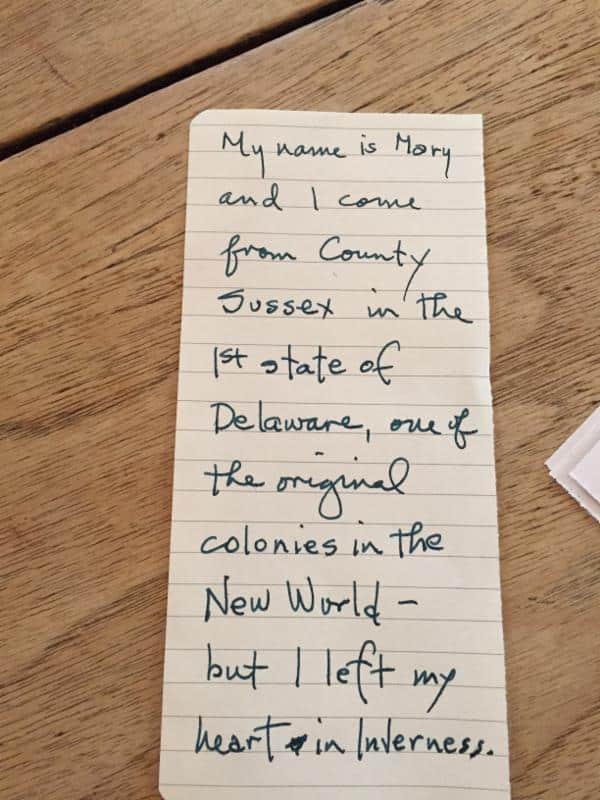 My name is Mary
and I come
from County
Sussex in the
1st state of
Delaware, one of
the original
colonies in the
New World -
but I left my
heart in Inverness.